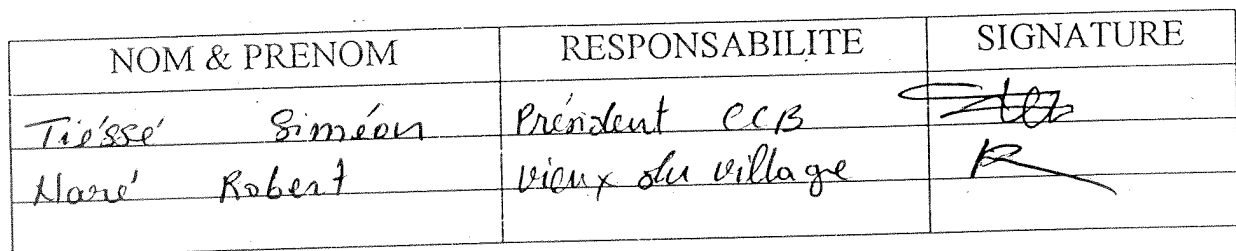 NOM & PRENOM RESPONSABILITE SIGNATURE
Tiéssé Siméon Président CCB
Naré Robert vieux du village